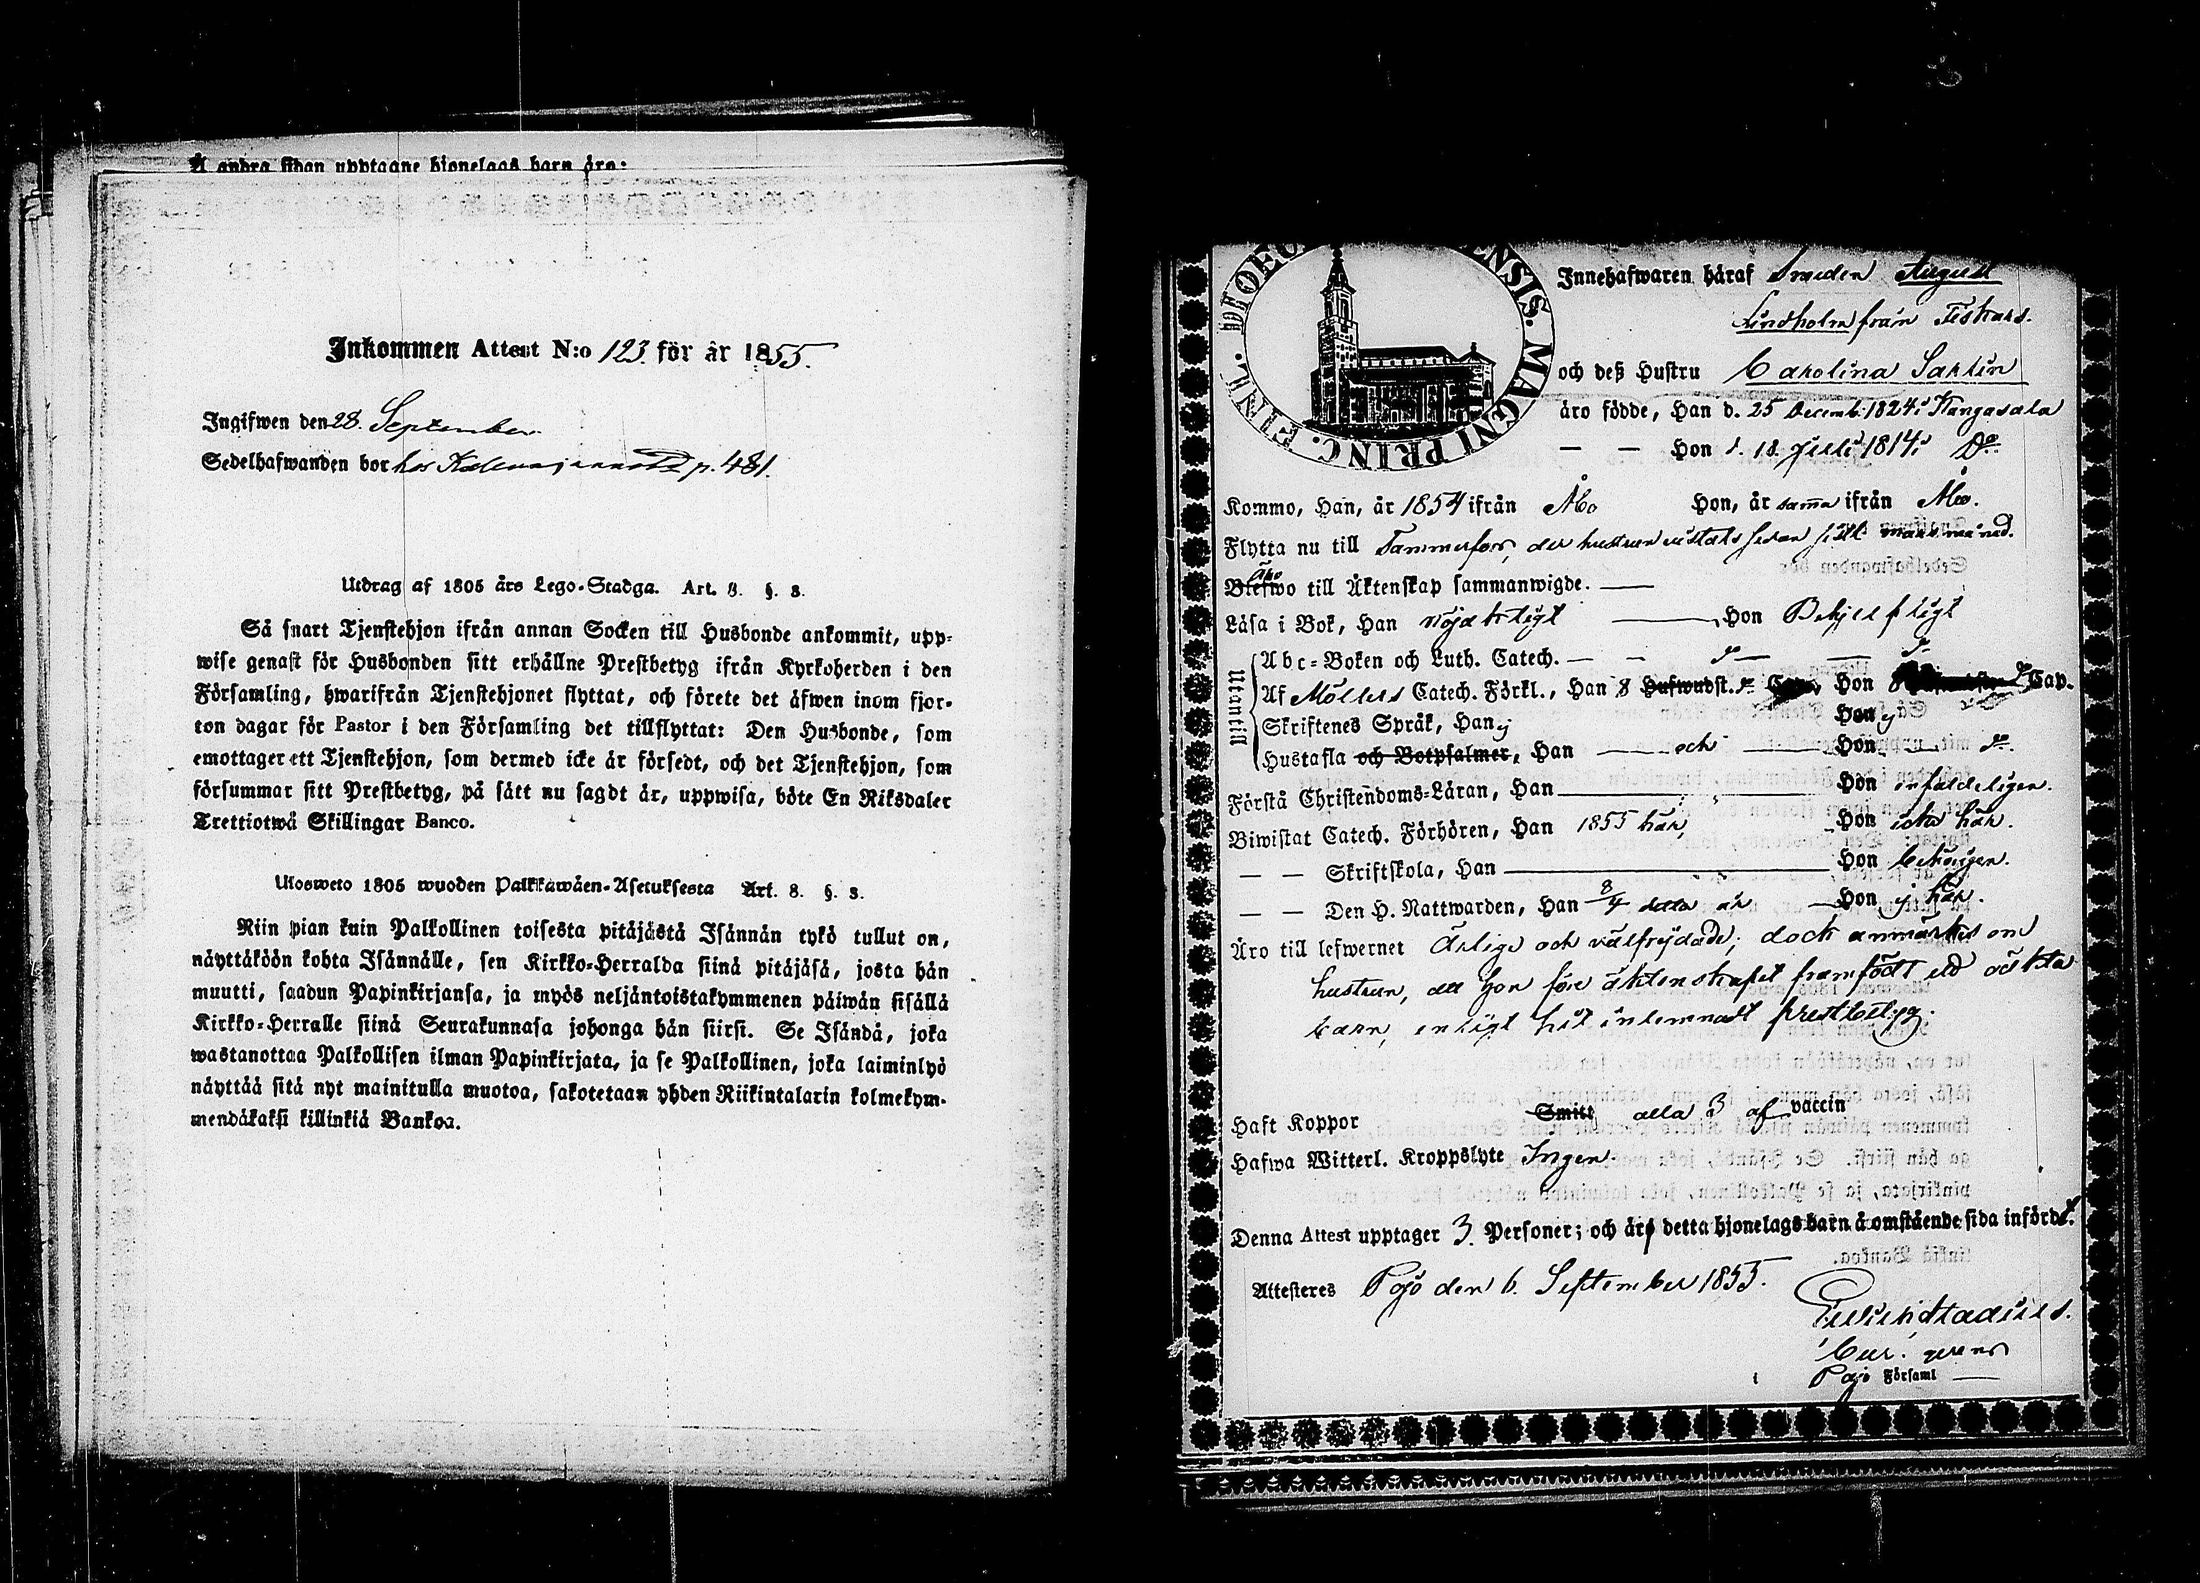 Å andra sidan upptagne hjonelags barn äro:
Inkommen Attest N:o 123 för år 1855.
Ingifwen den 28. September
Sedelhafwanden bor hos p. 481.
Utdrag af 1805 års Lego-Stadga. Art. 8. §. 3.
Så snart Tjenstehjon ifrån annan Socken till Husbonde ankommit, upp-
wise genast för Husbonden sitt erhållne Prestbetyg ifrån Kyrkoherden i den
Församling, hwarifrån Tjenstehjonet flyttat, och förete det äfwen inom fjor-
ton dagar för Pastor i den Församling det tillflyttat: Den Husbonde, som
emottager ett Tjenstehjon, som dermed icke är försedt, och det Tjenstehjon, som
försummar sitt Prestbetyg, på sätt nu sagdt är, uppwisa, böte En Riksdaler
Trettiotwå Skillingar Banco.
Ulosweto 1805 wuoden Palkkawäen-Asetuksesta Art. 8. §. 3.
Niin pian kuin Palkollinen toisesta pitäjästä Isännän tykö tullut on,
näyttäköön kohta Isännälle, sen Kirkko-Herralda siinä pitäjäsä, josta hän
muutti, saadun Papinkirjansa, ja myös neljäntoistakymmenen päiwän sisällä
Kirkko-Herralle siinä Seurakunnasa johonga hän siirsi. Se Isändä, joka
wastanottaa Palkollisen ilman Papinkirjata, ja se Palkollinen, joka laiminlyö
näyttää sitä nyt mainitulla muotoa, sakotetaan yhden Riikintalarin kolmekym-
mendäkaksi killinkiä Bankoa.
ENSIS. MAGNI PRINC. FINL. DIOEC
Innehafwaren häraf Smeden August
Lindholm från Fiskars.
och deß Hustru Carolina Sahlin
äro födde, Han d. 25 Decemb. 1824 i Kangasala
— — Hon d. 18. Juli 1814 i Do
Kommo, Han, år 1854 ifrån Åbo Hon, år samma ifrån Åbo.
Flytta nu till Tammerfors, der hustrun vistats sedan sistl. mars månad.
Äro
Blefwo till Äktenskap sammanwigde. —
Läsa i Bok, Han nöjaktigt — Hon Behjelpligt
Utantill
Abc-Boken och Luth. Catech. — —
Af Möllers Catech. Förkl., Han 8 Hufwudst. Cap., Hon 8 Cap.
Skriftenes Språk, Han ej Hon ej
Hustafla och Botpsalmer, Han — och — Hon —
Förstå Christendoms-Läran, Han — Hon enfaldeligen.
Biwistat Catech. Förhören, Han 1855 här, Hon icke här.
— — Skriftskola, Han — Hon behörigen.
— — Den H. Nattwarden, Han 8/4 detta år — Hon ej här.
Äro till lefwernet ärlige och välfrejdade; dock anmärkes om
hustrun, att hon före äktenskapet framfödt ett oäkta
barn, enligt hit inlemnadt prestbetyg.
Haft Koppor Smitt alla 3 af vaccin
Hafwa Witterl. Kroppslyte Ingen.
Denna Attest upptager 3. Personer; och är detta hjonelags barn å omstående sida infördt.
Attesteres Pojo den 6. September 1855.
Cur. gerens
i Pojo Församl —